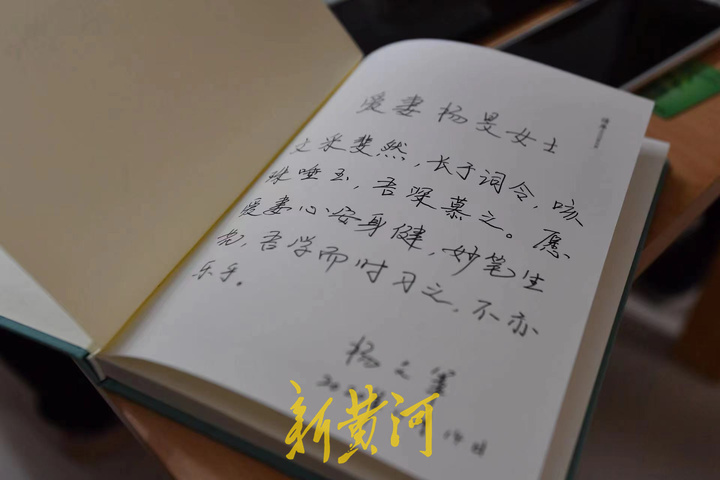 爱妻 杨旻女士
文采斐然，长于词令，咳
珠唾玉，吾深慕之。愿
爱妻心安身健，妙笔生
花，吾学而时习之，不亦
乐乎。
杨文
20
14日
新黄河